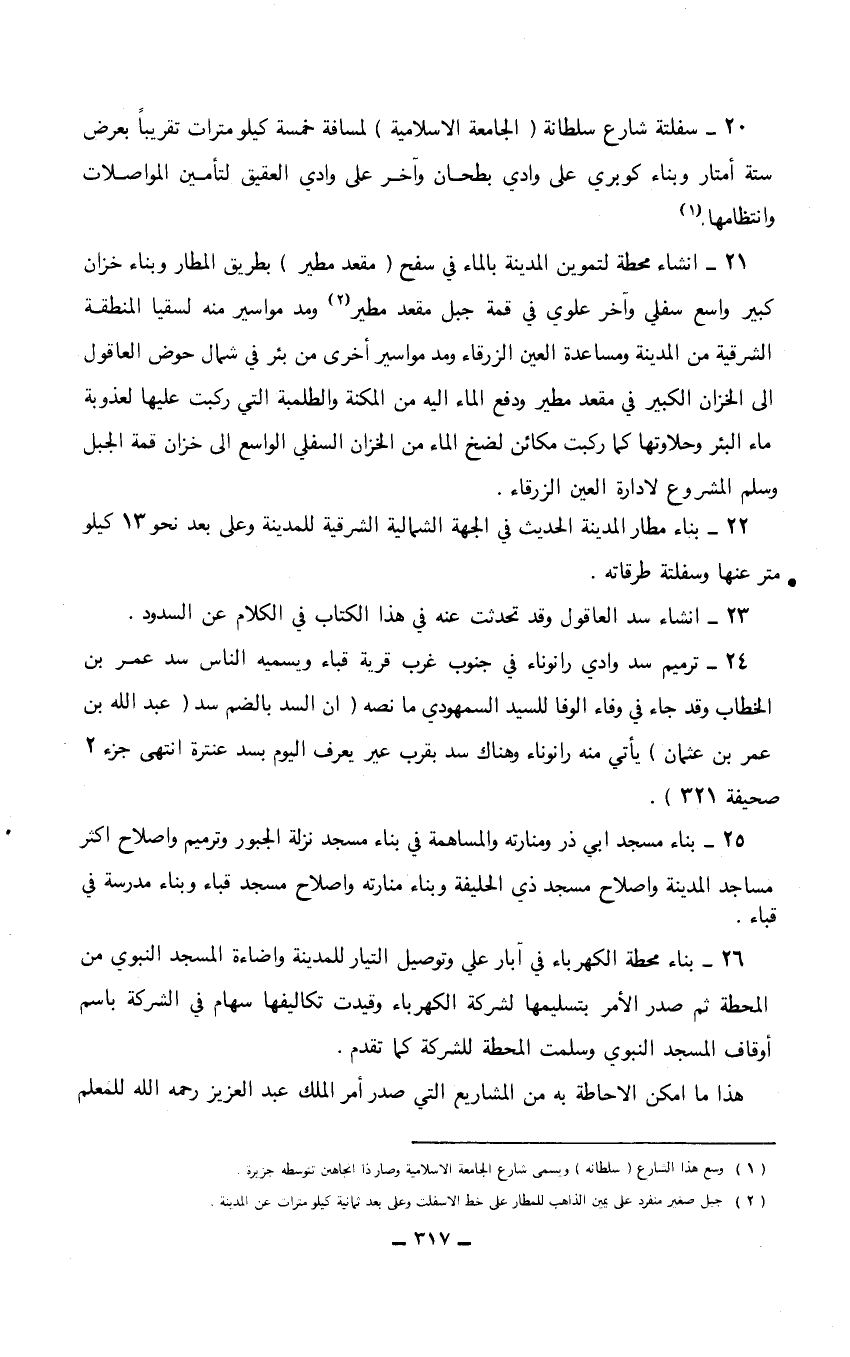 ٢٠ ـ سفلتة شارع سلطانة ( الجامعة الاسلامية ) لمسافة خمسة كيلو مترات تقريباً بعرض
ستة أمتار وبناء كوبري على وادي بطحـان وآخـر على وادي العقيق لتأمـين المواصـلات
وانتظامها.(١)
٢١ ـ انشاء محطة لتموين المدينة بالماء في سفح ( مقعد مطير ) بطريق المطار وبناء خزان
كبير واسع سفلي وآخر علوي في قمة جبل مقعد مطير(٢) ومد مواسير منه لسقيا المنطقـة
الشرقية من المدينة ومساعدة العين الزرقاء ومد مواسير أخرى من بئر في شمال حوض العاقول
الى الخزان الكبير في مقعد مطير ودفع الماء اليه من المكنة والطلمبة التي ركبت عليها لعذوبة
ماء البئر وحلاوتها كما ركبت مكائن لضخ الماء من الخزان السفلي الواسع الى خزان قمة الجبل
وسلم المشروع لادارة العين الزرقاء .
٢٢ ـ بناء مطار المدينة الحديث في الجهة الشمالية الشرقية للمدينة وعلى بعد نحو ١٣ كيلو
متر عنها وسفلتة طرقاته .
٢٣ ـ انشاء سد العاقول وقد تحدثت عنه في هذا الكتاب في الكلام عن السدود .
٢٤ ـ ترميم سد وادي رانوناء في جنوب غرب قرية قباء ويسميه الناس سد عمـر بن
الخطاب وقد جاء في وفاء الوفا للسيد السمهودي ما نصه ( ان السد بالضم سد ( عبد الله بن
عمر بن عثمان ) يأتي منه رانوناء وهناك سد بقرب عير يعرف اليوم بسد عنترة انتهى جزء ٢
صحيفة ٣٢١ ) .
٢٥ ـ بناء مسجد ابي ذر ومنارته والمساهمة في بناء مسجد نزلة الجبور وترميم واصلاح اكثر
مساجد المدينة واصلاح مسجد ذي الحليفة وبناء منارته واصلاح مسجد قباء وبناء مدرسة في
قباء .
٢٦ ـ بناء محطة الكهرباء في آبار علي وتوصيل التيار للمدينة واضاءة المسجد النبوي من
المحطة ثم صدر الأمر بتسليمها لشركة الكهرباء وقيدت تكاليفها سهام في الشركة باسم
أوقاف المسجد النبوي وسلمت المحطة للشركة كما تقدم .
هذا ما امكن الاحاطة به من المشاريع التي صدر أمر الملك عبد العزيز رحمه الله للمعلم
( ١ ) وسع هذا الشارع ( سلطانه ) ويسمى شارع الجامعة الاسلامية وصار ذا اتجاهين تتوسطه جزيرة .
( ٢ ) جبل صغير منفرد على يمين الذاهب للمطار على خط الاسفلت وعلى بعد ثمانية كيلو مترات عن المدينة .
ـ ٣١٧ ـ